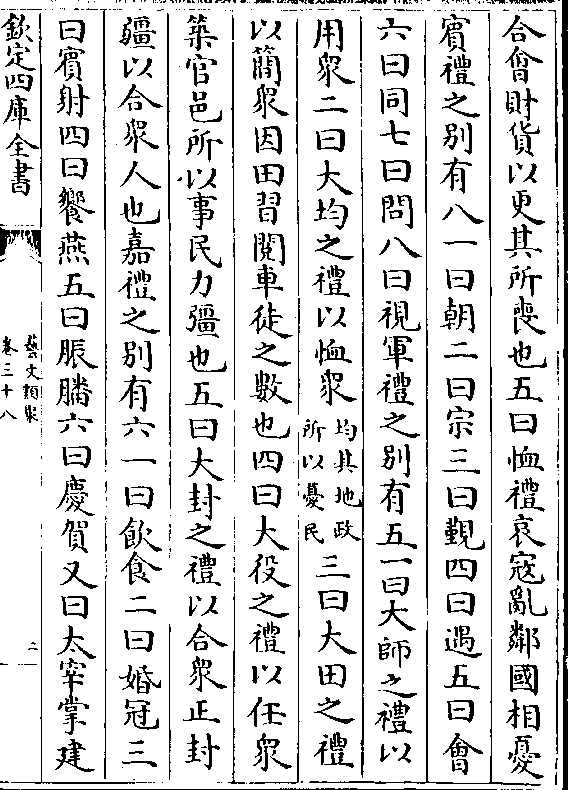 合會財貨以更其所喪也五曰恤禮哀寇亂鄰國相憂
賓禮之别有八一曰朝二曰宗三曰覲四曰遇五曰會
六曰同七曰問八曰視軍禮之别有五一曰大師之禮以
用衆二曰大均之禮以恤衆均其地政所以憂民三曰大田之禮
以簡衆因田習閱車徒之數也四曰大役之禮以任衆
築官邑所以事民力彊也五曰大封之禮以合衆正封
疆以合衆人也嘉禮之别有六一曰飲食二曰婚冠三
曰賓射四曰饗燕五曰脤膰六曰慶賀又曰太宰掌建
欽定四庫全書
藝文類聚
卷三十八
二